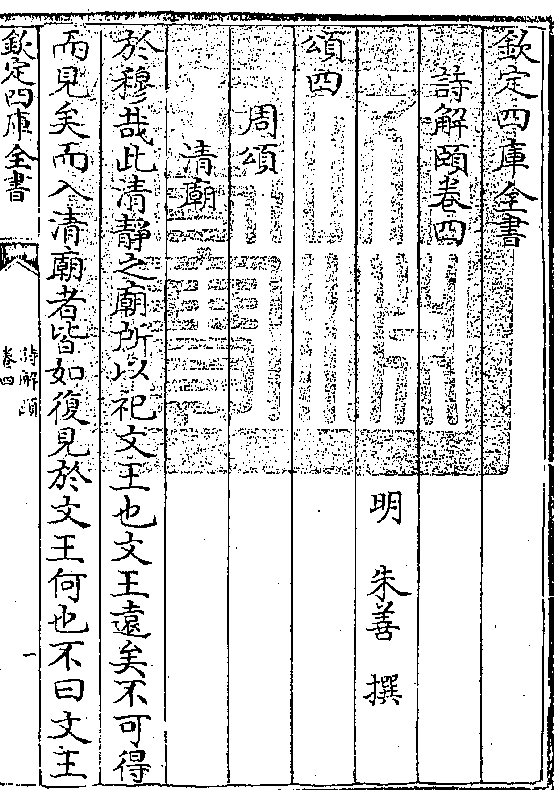 欽定四庫全書
詩解頤卷四
明 朱善 撰
頌四
周頌
清廟
於穆哉此清靜之廟所以祀文王也文王遠矣不可得
而見矣而入清廟者皆如復見於文王何也不曰文王
欽定四庫全書
詩解頤
卷四
一